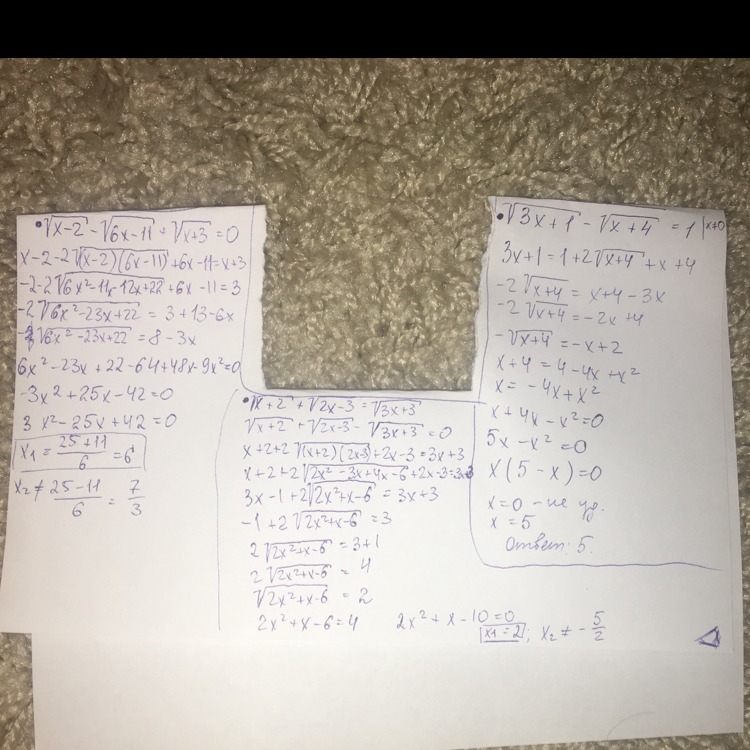 • √(x-2) - √(6x-11) + √(x+3) = 0
x-2-2√((x-2)(6x-11)) + 6x-11 = x+3
-2-2√(6x²-11x-12x+22) + 6x-11 = 3
-2√(6x²-23x+22) = 3+13-6x
√(6x²-23x+22) = 8-3x
6x²-23x+22-64+48x-9x²=0
-3x²+25x-42=0
3x²-25x+42=0
x₁ = (25+11)/6 = 6
x₂ ≠ (25-11)/6 = 7/3
• √(x+2) + √(2x-3) = √(3x+3)
√(x+2) + √(2x-3) - √(3x+3) = 0
x+2+2√((x+2)(2x-3)) + 2x-3 = 3x+3
x+2+2√(2x²-3x+4x-6) + 2x-3 = 3x+3
3x-1+2√(2x²+x-6) = 3x+3
-1+2√(2x²+x-6) = 3
2√(2x²+x-6) = 3+1
2√(2x²+x-6) = 4
√(2x²+x-6) = 2
2x²+x-6=4
2x²+x-10=0
x₁=2; x₂ ≠ -5/2
• √(3x+1) - √(x+4) = 1
3x+1 = 1+2√(x+4) + x+4
-2√(x+4) = x+4-3x
-2√(x+4) = -2x+4
-√(x+4) = -x+2
x+4 = 4-4x+x²
x = -4x+x²
x+4x-x²=0
5x-x²=0
x(5-x)=0
x=0 - не уд.
x=5
Ответ: 5.